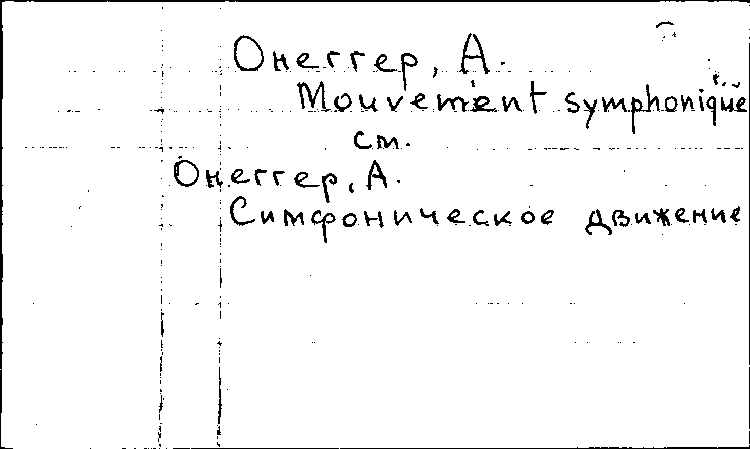 Онеггер, А.
Mouvement symphonique
см.
Онеггер, А.
Симфоническое движение